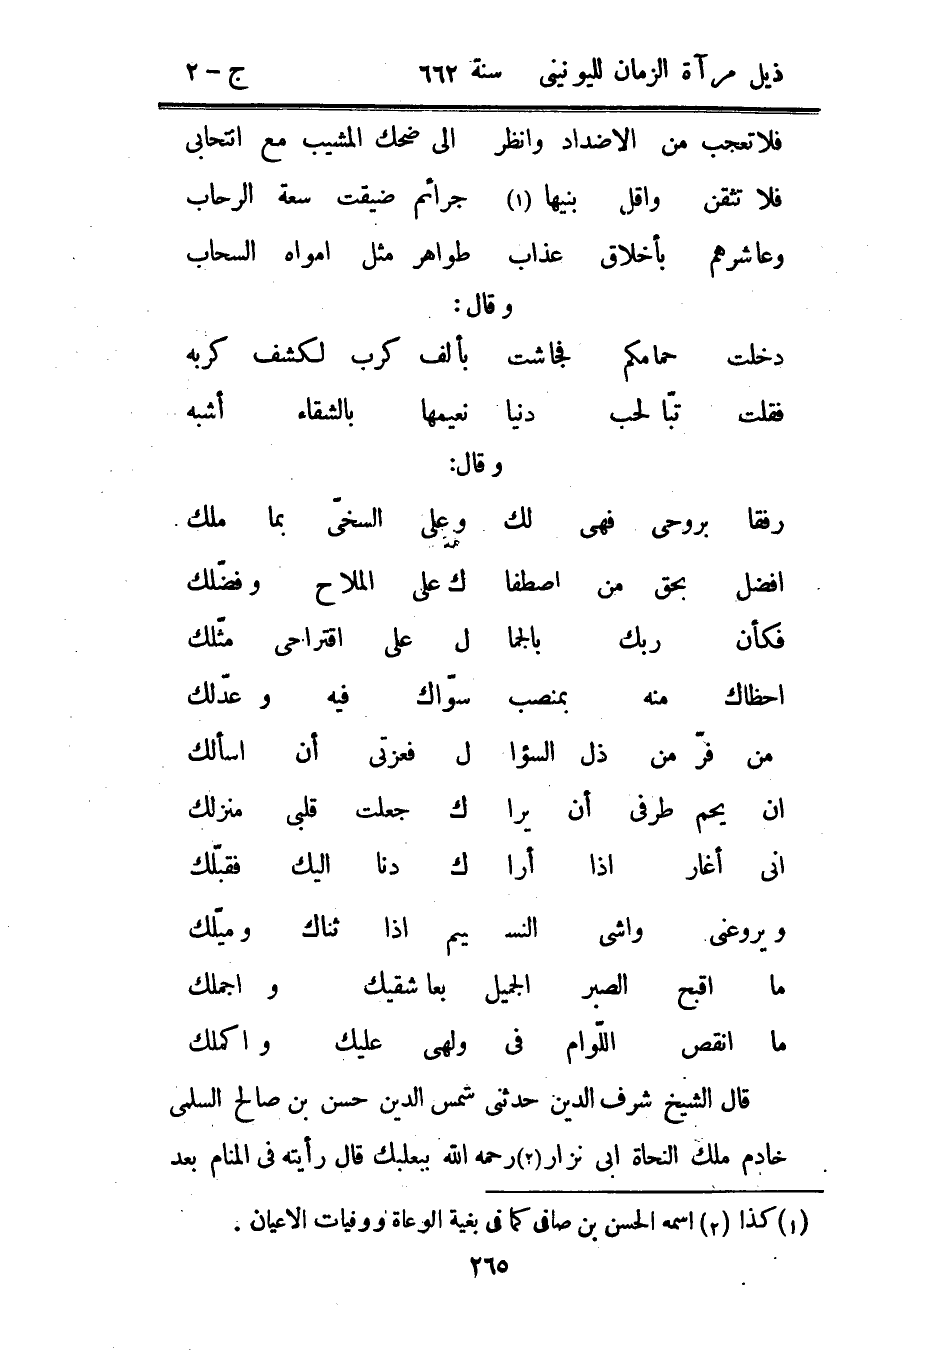 ذيل مرآة الزمان لليونينى سنة ٦٦٢ ج - ٢
فلا تعجب من الاضداد وانظر الى ضحك المشيب مع انتحابى
فلا تثقن واقل بنيها (١) جرائم ضيقت سعة الرحاب
وعاشرهم بأخلاق عذاب طواهر مثل امواه السحاب
وقال:
دخلت حمامكم فجاشت بألف كرب لكشف كربه
فقلت تبّا لحب دنيا نعيمها بالشقاء أشبه
وقال:
رفقا بروحى فهى لك وعلى السخىّ بما ملك
افضل بحق من اصطفا ك على الملاح وفضّلك
فكأن ربك بالجما ل على اقتراحى مثّلك
احظاك منه بمنصب سوّاك فيه وعدّلك
من فرّ من ذل السؤا ل فعزتى أن اسألك
ان يحم طرفى أن يرا ك جعلت قلبى منزلك
انى أغار اذا أرا ك دنا اليك فقبّلك
ويروعنى واشى النسـ يم اذا ثناك وميّلك
ما اقبح الصبر الجميل بعاشقيك و اجملك
ما انقص اللّوام فى ولهى عليك و اكملك
قال الشيخ شرف الدين حدثنى شمس الدين حسن بن صالح السلمى
خادم ملك النحاة ابى نزار (٢) رحمه الله ببعلبك قال رأيته فى المنام بعد
(١) كذا (٢) اسمه الحسن بن صافى كما فى بغية الوعاة ووفيات الاعيان .
٢٦٥